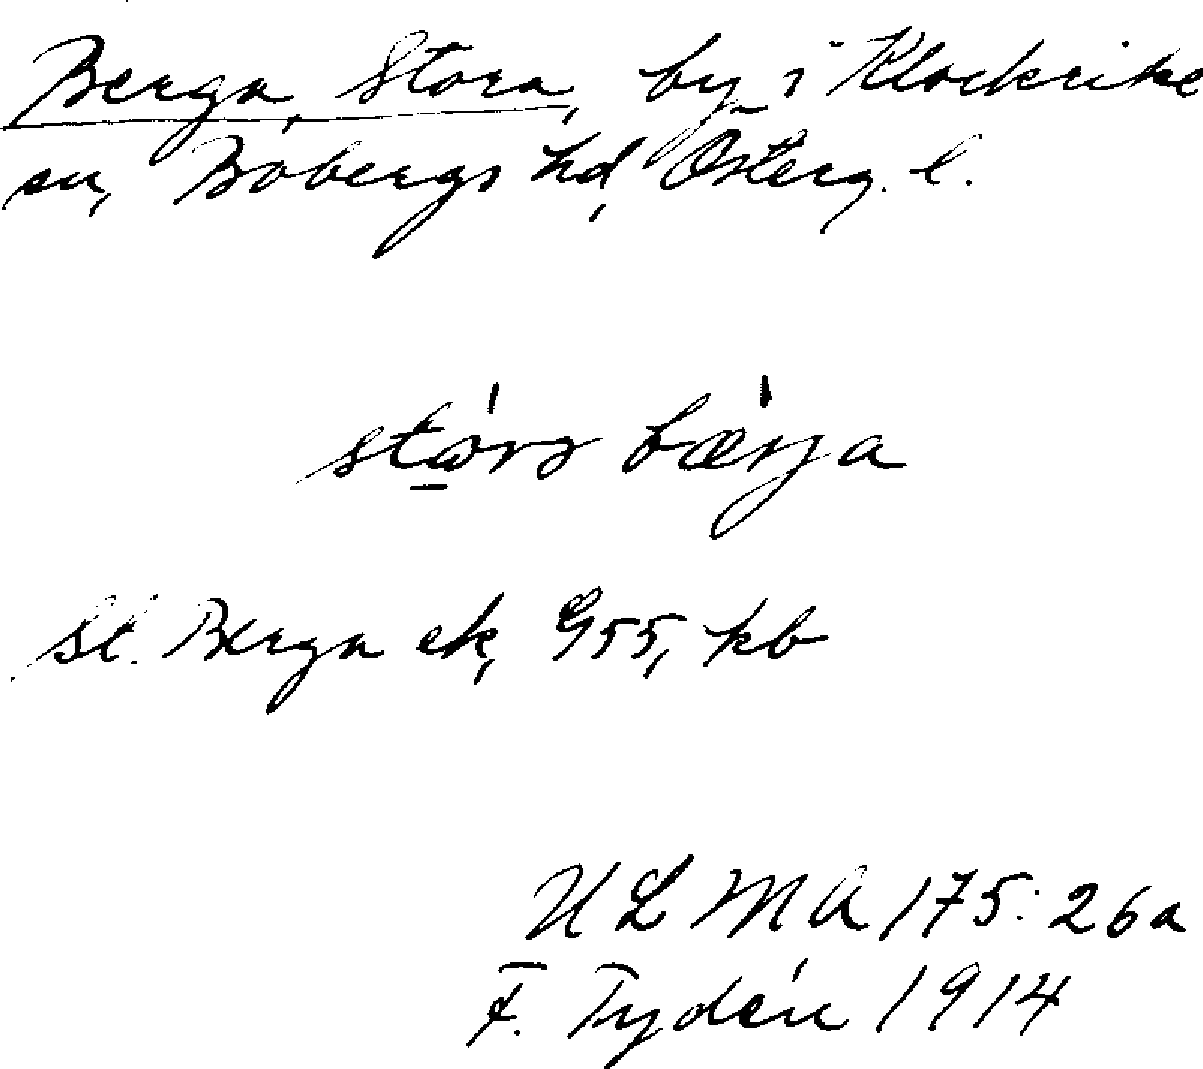 Berga, Stora, by i Klockrike
sn, Bobergs hd, Österg. l.
bærja
St. Berga ek, G55, kb
ULMA 175:26a
F. Tydén 1914